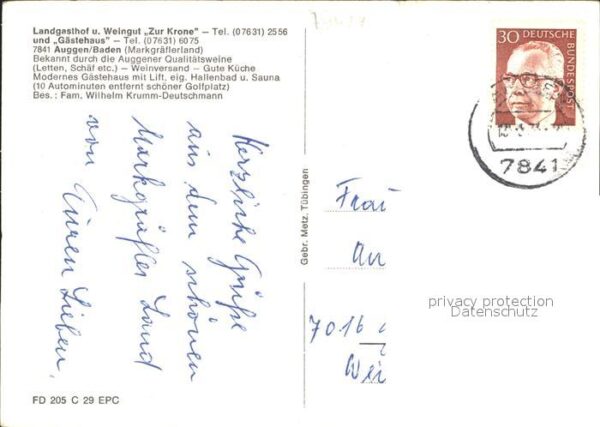 Landgasthof u. Weingut „Zur Krone" – Tel. (07631) 2556
und „Gästehaus" – Tel. (07631) 6075
7841 Auggen/Baden (Markgräflerland)
Bekannt durch die Auggener Qualitätsweine
(Letten, Schäf etc.) – Weinversand – Gute Küche
Modernes Gästehaus mit Lift, eig. Hallenbad u. Sauna
(10 Autominuten entfernt schöner Golfplatz)
Bes.: Fam. Wilhelm Krumm-Deutschmann
Herzliche Grüße
aus dem schönen
Markgräfler Land
von Euren Lieben.
FD 205 C 29 EPC
Gebr. Metz, Tübingen
30 DEUTSCHE
BUNDESPOST
7841
Frau
An
7016
Wei
privacy protection
Datenschutz